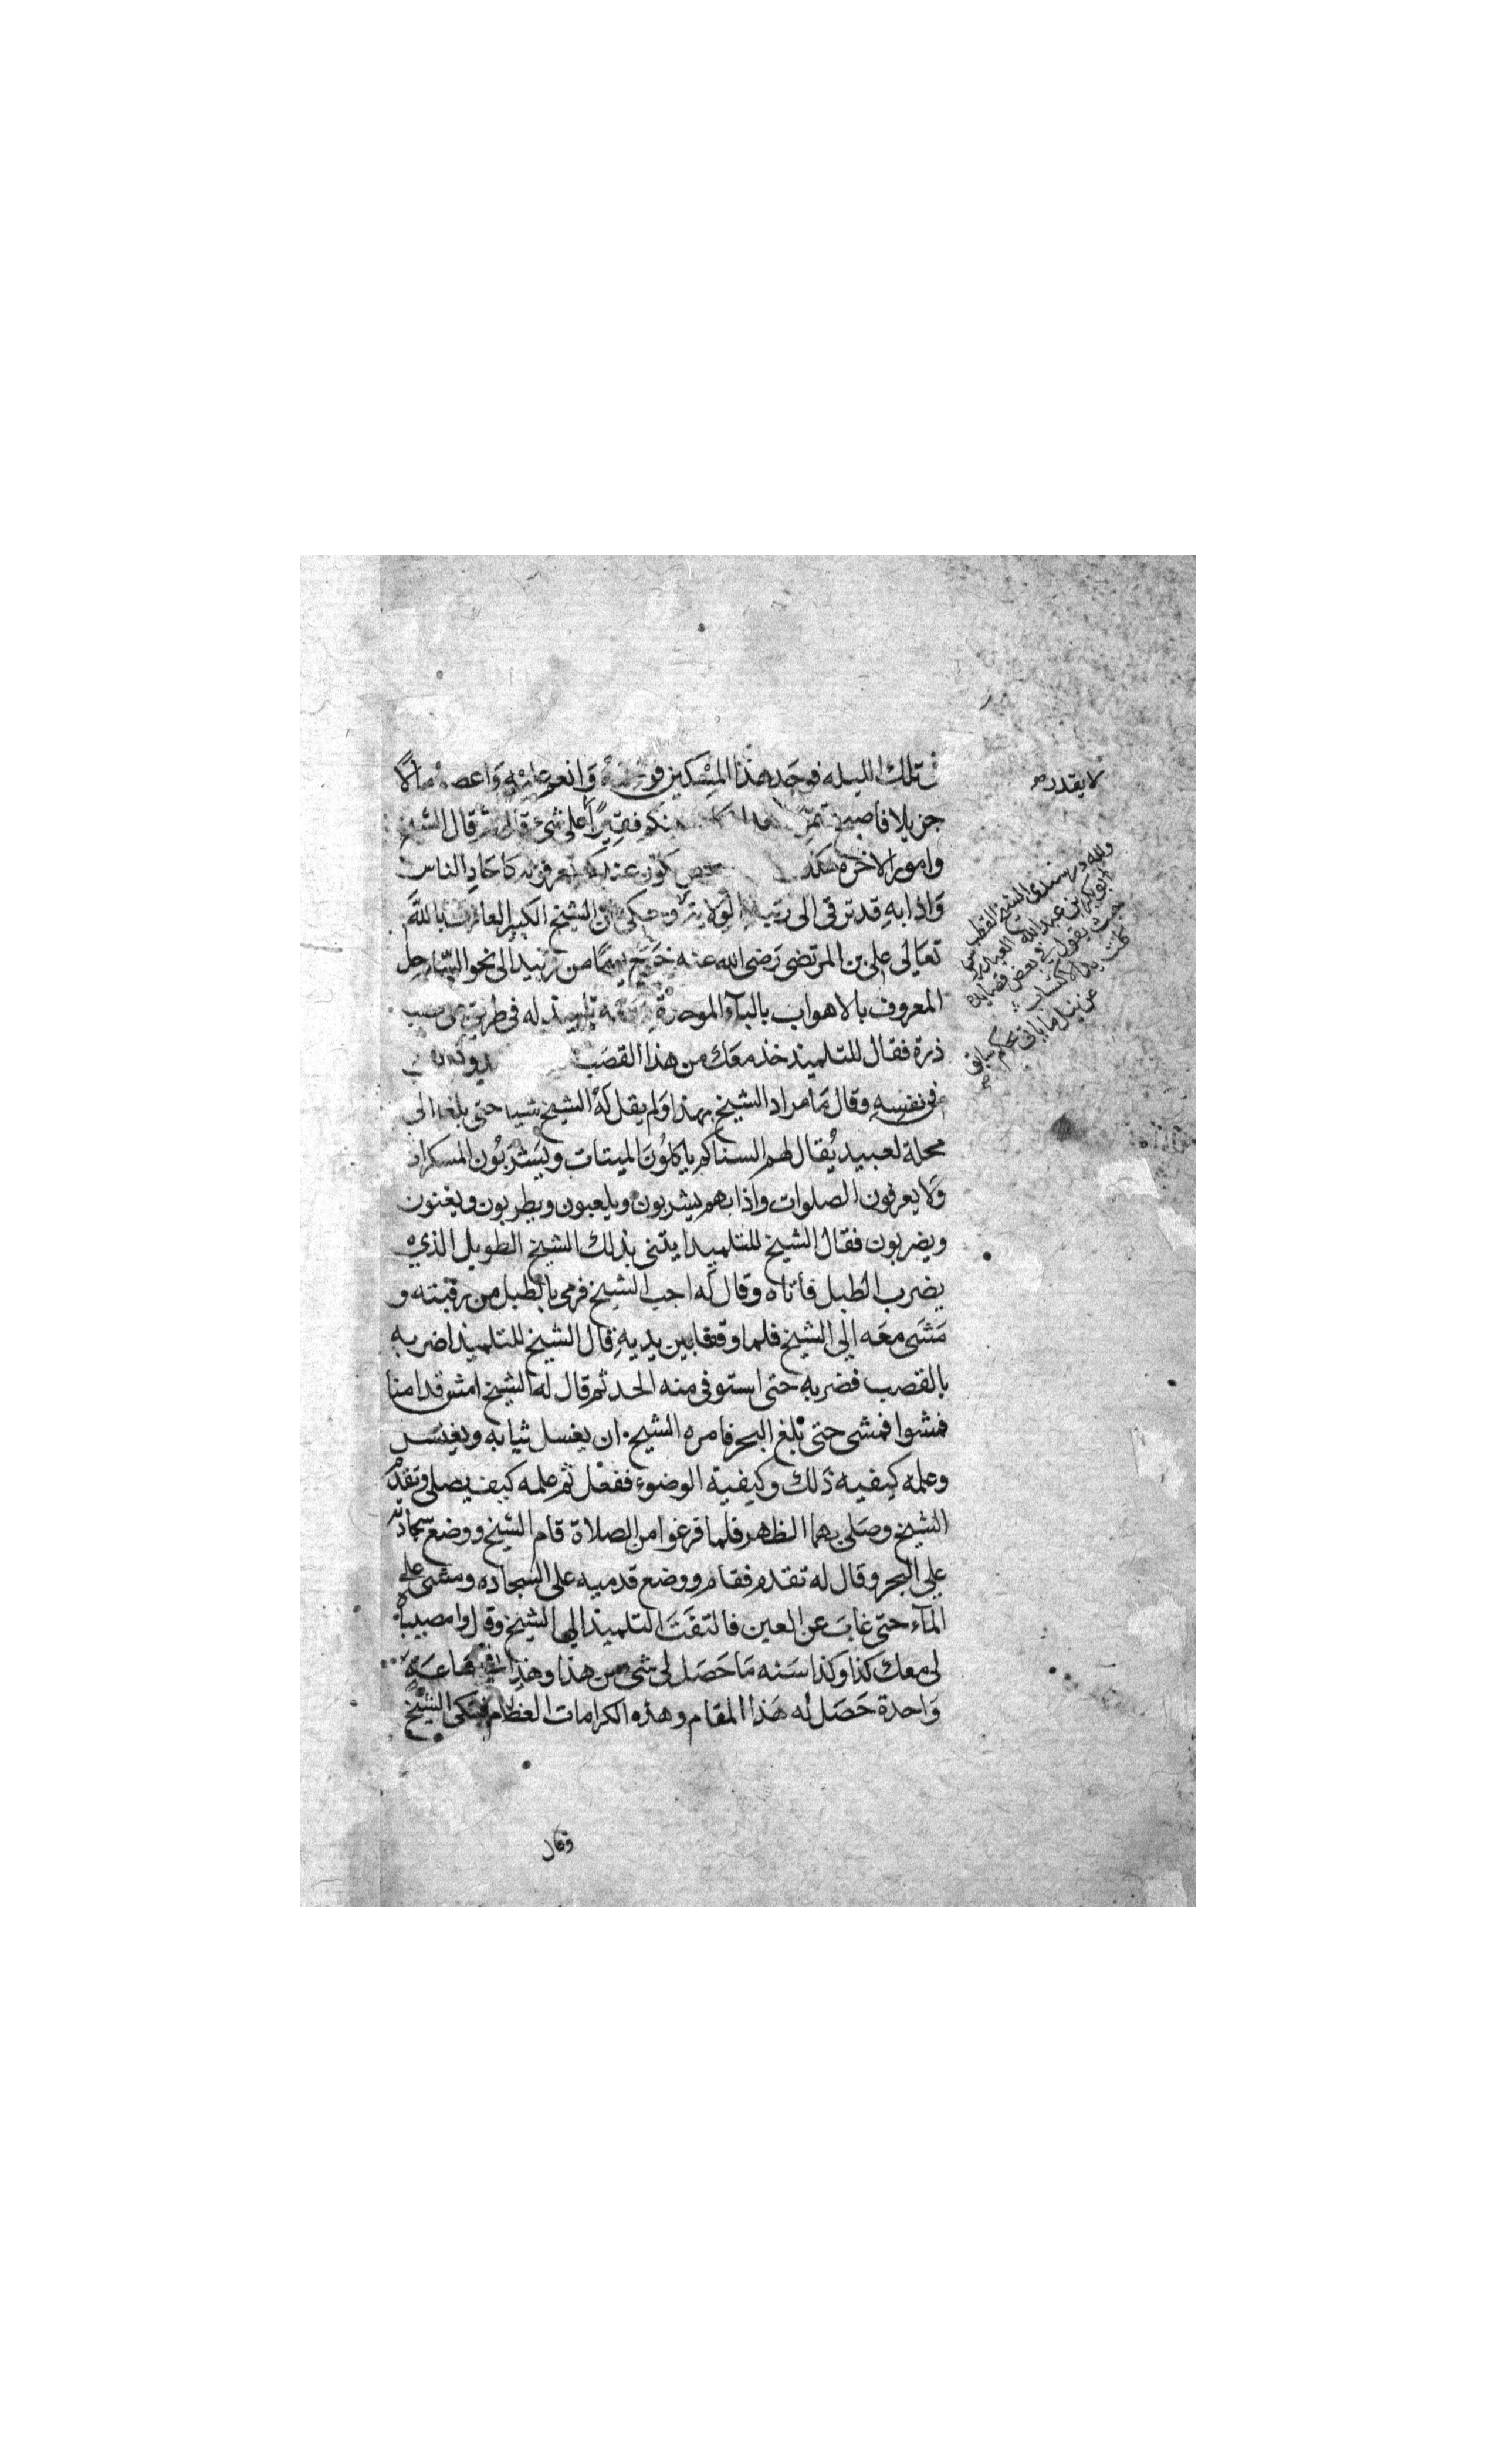 تلك الليله فوجد هذا المسكين وانعم عليه واعطاه مالًا
جزيلا فاصبح فقيرًا على شئ قال الشيخ
وامور الاخره كذ يكون عندكم تعرفونه كاحاد الناس
واذا به قد ترقى الى رتبة الولاية وحكي ان الشيخ الكبير العارف بالله
تعالى على بن المرتضى رضى الله عنه خرج يومًا من زبيد الى نحو الساحل
المعروف بالاهواب بالبآء الموحدة ومعه تلميذ له فى طريق
ذرة فقال للتلميذ خذ معك من هذا القصب
فى نفسه وقال ما مراد الشيخ بهذا ولم يقل له الشيخ شيا حتى بلغا الى
محلة لعبيد يُقال لهم السناكم ياكلون الميتات ويشربُون المسكرات
ولا يعرفون الصلوات واذا بهم يشربون ويلعبون ويطربون ويغنون
ويضربون فقال الشيخ للتلميذ ايتنى بذلك الشيخ الطويل الذي
يضرب الطبل فأتاه وقال له اجب الشيخ فرمى بالطبل من رقبته و
مشى معه إلى الشيخ فلما وقفا بين يديه قال الشيخ للتلميذ اضربه
بالقصب فضربه حتى استوفى منه الحد ثم قال له الشيخ امش قدامنا
فمشوا فمشى حتى بلغ البحر فامره الشيخ ان يغسل ثيابه ويغتسل
وعلمه كيفيه ذلك وكيفية الوضوء ففعل ثم علمه كيف يصلى وتقدم
الشيخ وصلى بهما الظهر فلما فرغوا من الصلاة قام الشيخ ووضع سجادته
على البحر وقال له تقدم فقام ووضع قدميه على السجاده ومشى على
المآء حتى غاب عن العين فالتفت التلميذ الى الشيخ وقال وامصيبتاه
لى معك كذا وكذا سنه ما حصل لى شى من هذا وهذا فى ساعة
واحدة حصل له هذا المقام وهذه الكرامات العظام فبكى الشيخ
وقال
لا يقدر
ولله در سيدى الشيخ القطب
ابوبكر بن عبدالله العيدروس
حيث يقول فى بعض قصايده
كلت يد الاكتساب
عن نيل ما ياتى بحكم سابق